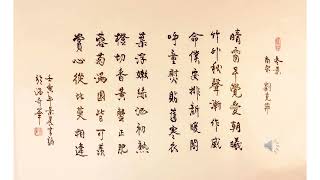 冬景
南宋 劉克莊
晴窗早覺愛朝曦
竹外秋聲漸作威
命僕安排新暖閣
呼童熨貼舊寒衣
葉浮嫩綠酒初熟
橙切香黃蟹正肥
蓉菊滿園皆可羨
賞心從此莫相違
壬寅年